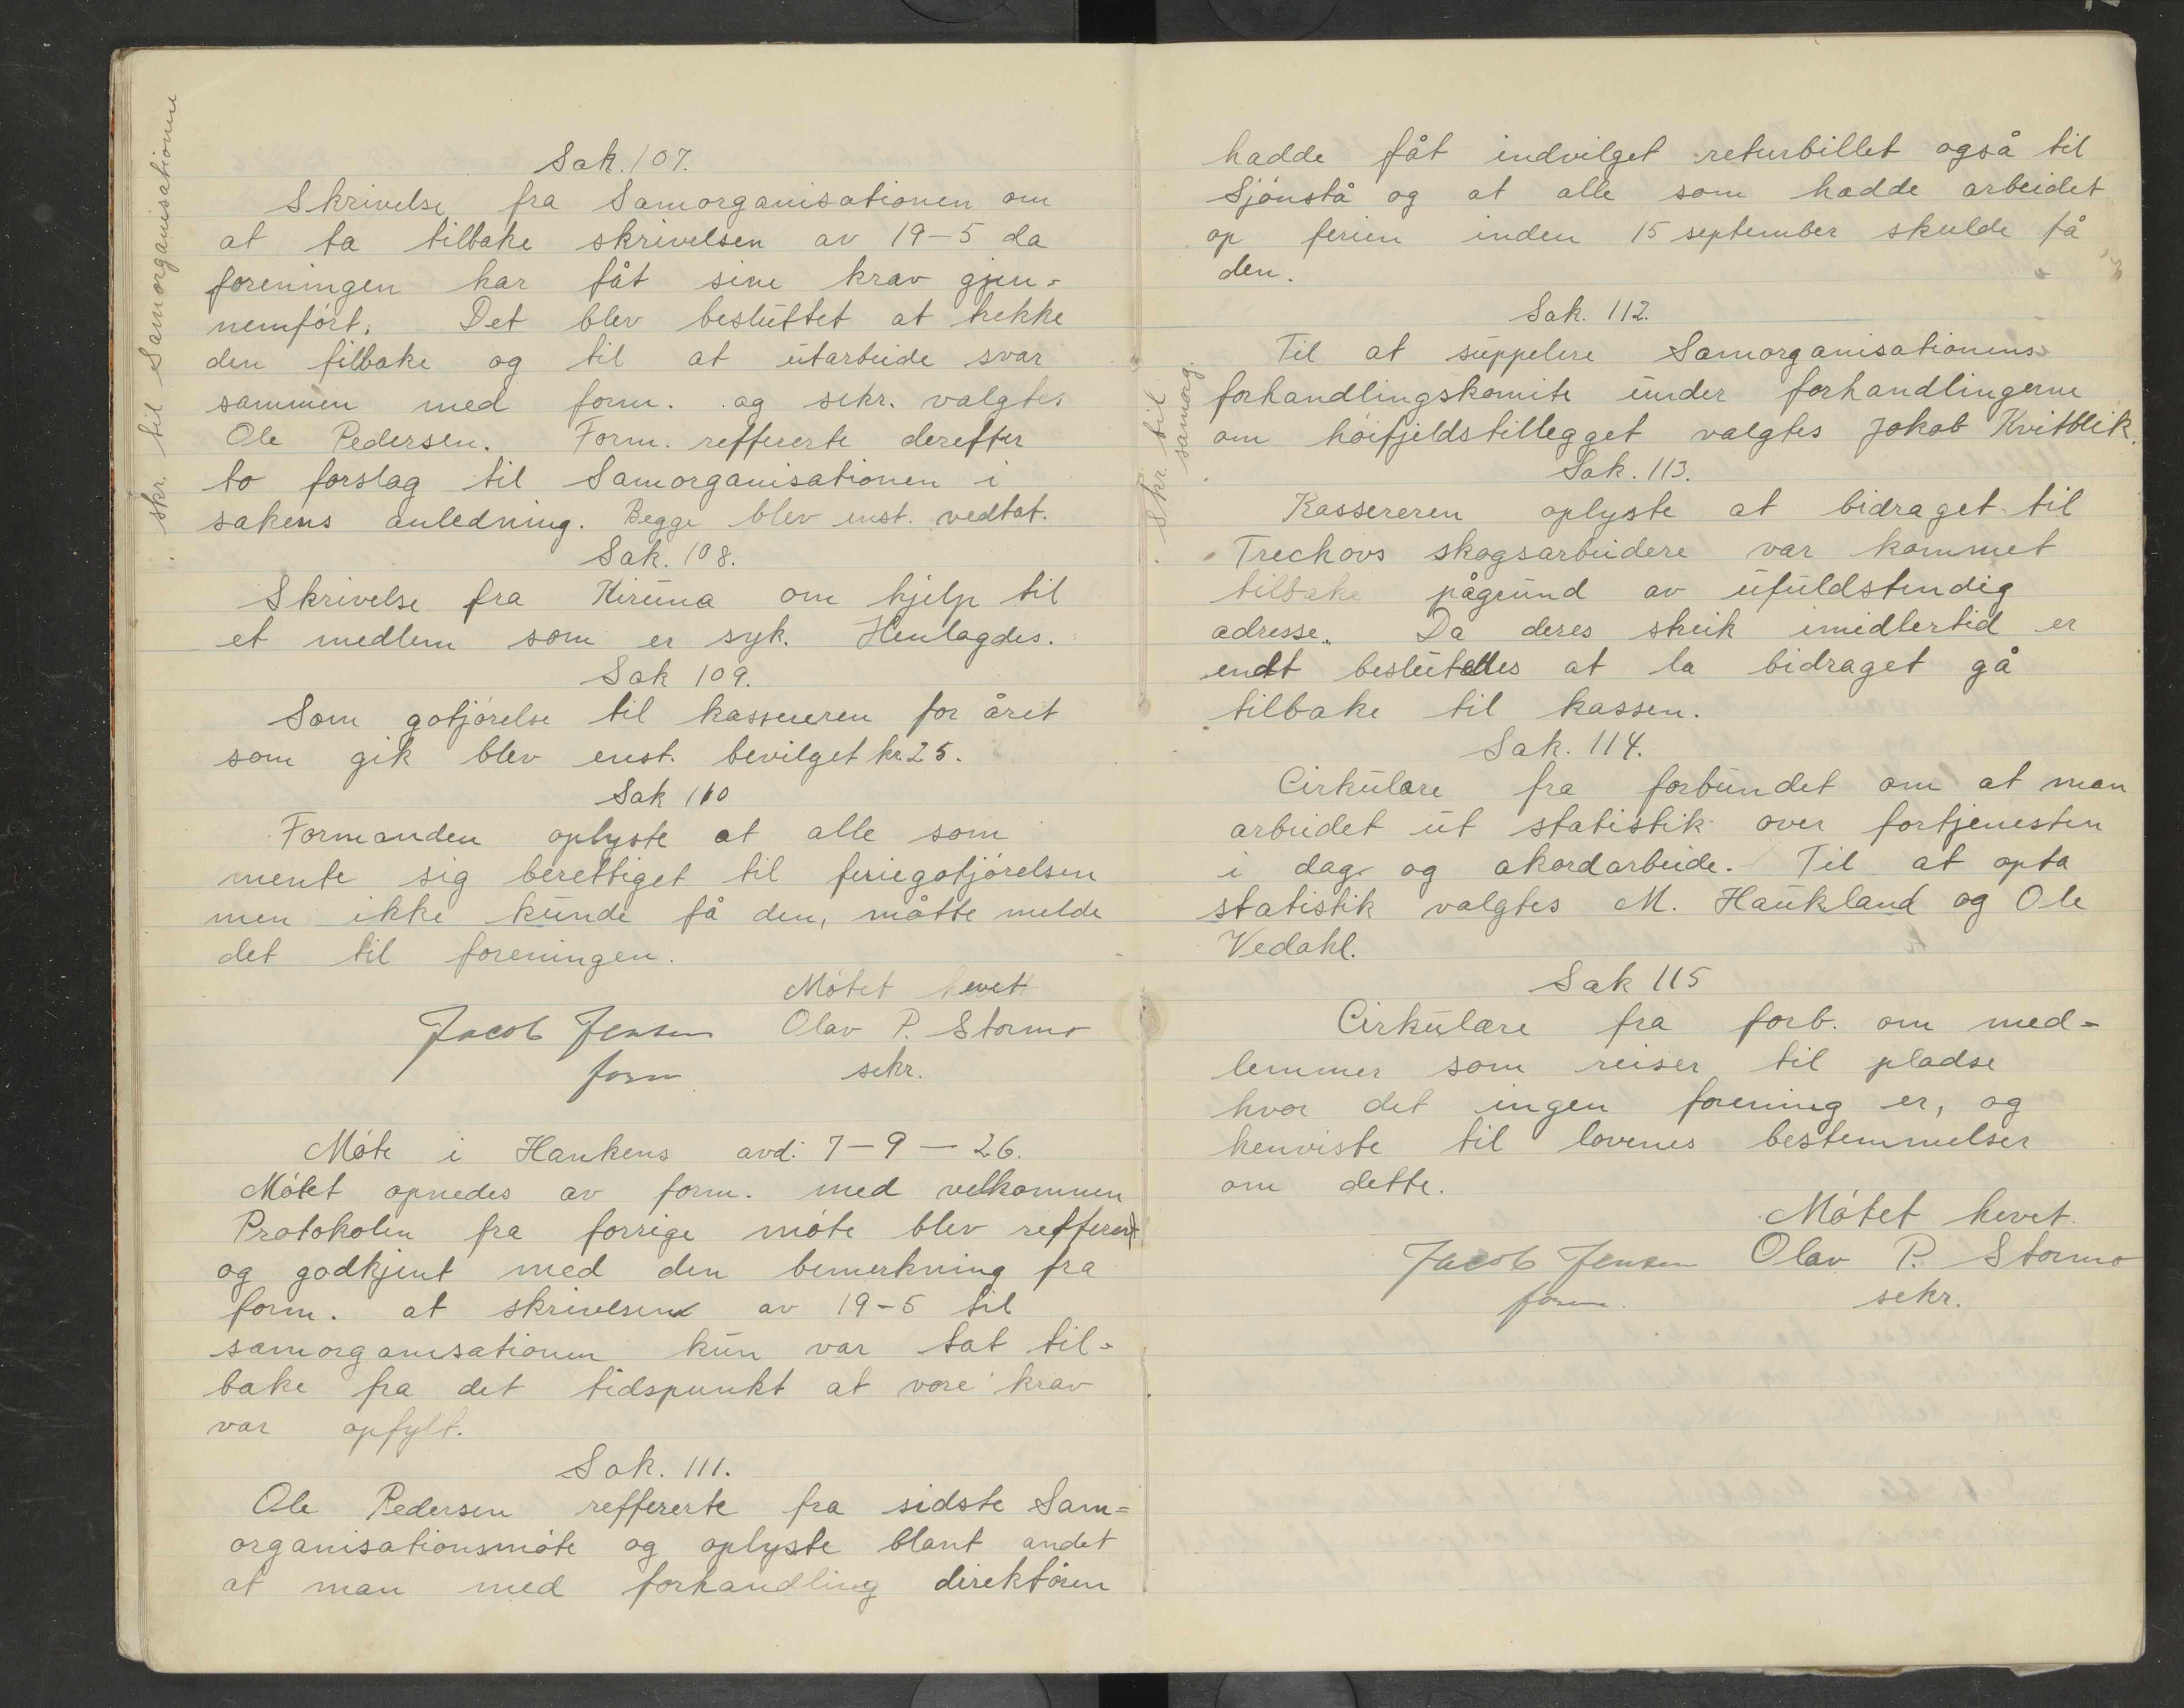 skr. til Samorganisationene
Sak. 107.
Skrivelse fra Samorganisationen om
at ta tilbake skrivelsen av 19-5 da
foreningen har fåt sine krav gjen-
nemført. Det blev besluttet at trekke
den tilbake og til at utarbeide svar
sammen med form. og sekr. valgtes
Ole Pedersen. Form. reffererte derefter
to forslag til Samorganisationen i
sakens anledning. Begge blev enst. vedtat.
Sak. 108.
Skrivelse fra Kiruna om hjelp til
et medlem som er syk. Henlagdes.
Sak 109.
Som gotjørelse til kassereren for året
som gik blev enst. bevilget kr. 25.
Sak 110
Formanden oplyste at alle som
mente sig berettiget til feriegotjørelsen
men ikke kunde få den, måtte melde
det til foreningen.
Møtet hevet
Jacob Jensen Olav P. Stormo
form sekr.
Møte i Hankens avd: 7-9-26.
Møtet opnedes av form. med velkommen
Protokolen fra forrige møte blev refferert
og godkjent med den bemerkning fra
form. at skrivelsen av 19-5 til
samorganisationen kun var tat til-
bake fra det tidspunkt at vore krav
var opfylt.
Sak. 111.
Ole Pedersen reffererte fra sidste Sam=
organisationsmøte og oplyste blant andet
at man med forhandling direktøren
hadde fåt indvilget returbillet også til
Sjønstå og at alle som hadde arbeidet
op ferien inden 15 september skulde få
den.
Sak. 112.
skr. til
samorg.
Til at suppelere Samorganisationens
forhandlingskomite under forhandlingerne
om høifjeldstillegget valgtes Jakob Kvitblik.
Sak. 113.
Kassereren oplyste at bidraget til
Treckovs skogsarbeidere var kommet
tilbake pågrund av ufuldstendig
adresse. Da deres streik imidlertid er
endt beslutedes at la bidraget gå
tilbake til kassen.
Sak. 114.
Cirkulære fra forbundet om at man
arbeidet ut statistik over fortjenesten
i dag- og akordarbeide. Til at opta
statistik valgtes M. Haukland og Ole
Vedahl.
Sak 115
Cirkulære fra forb. om med=
lemmer som reiser til pladse
hvor det ingen forening er, og
henviste til lovenes bestemmelser
om dette.
Møtet hevet.
Jacob Jensen Olav P. Stormo
form. sekr.